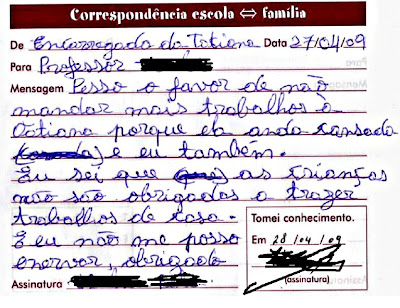 Correspondência escola ⇔ família
De Encarregada da Tatiana Data 27/04/09
Para Professor
Mensagem Pesso o favor de não
mandar mais trabalhos á
Tatiana porque ela anda cansada
e eu também.
Eu sei que as crianças
não são obrigadas a trazer
trabalhos de casa.
E eu não me posso
enervar, obrigado
Assinatura
Tomei conhecimento.
Em 28/04/09
(assinatura)